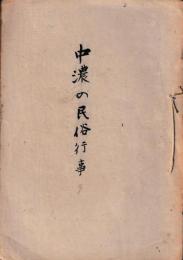 中濃の民俗行事